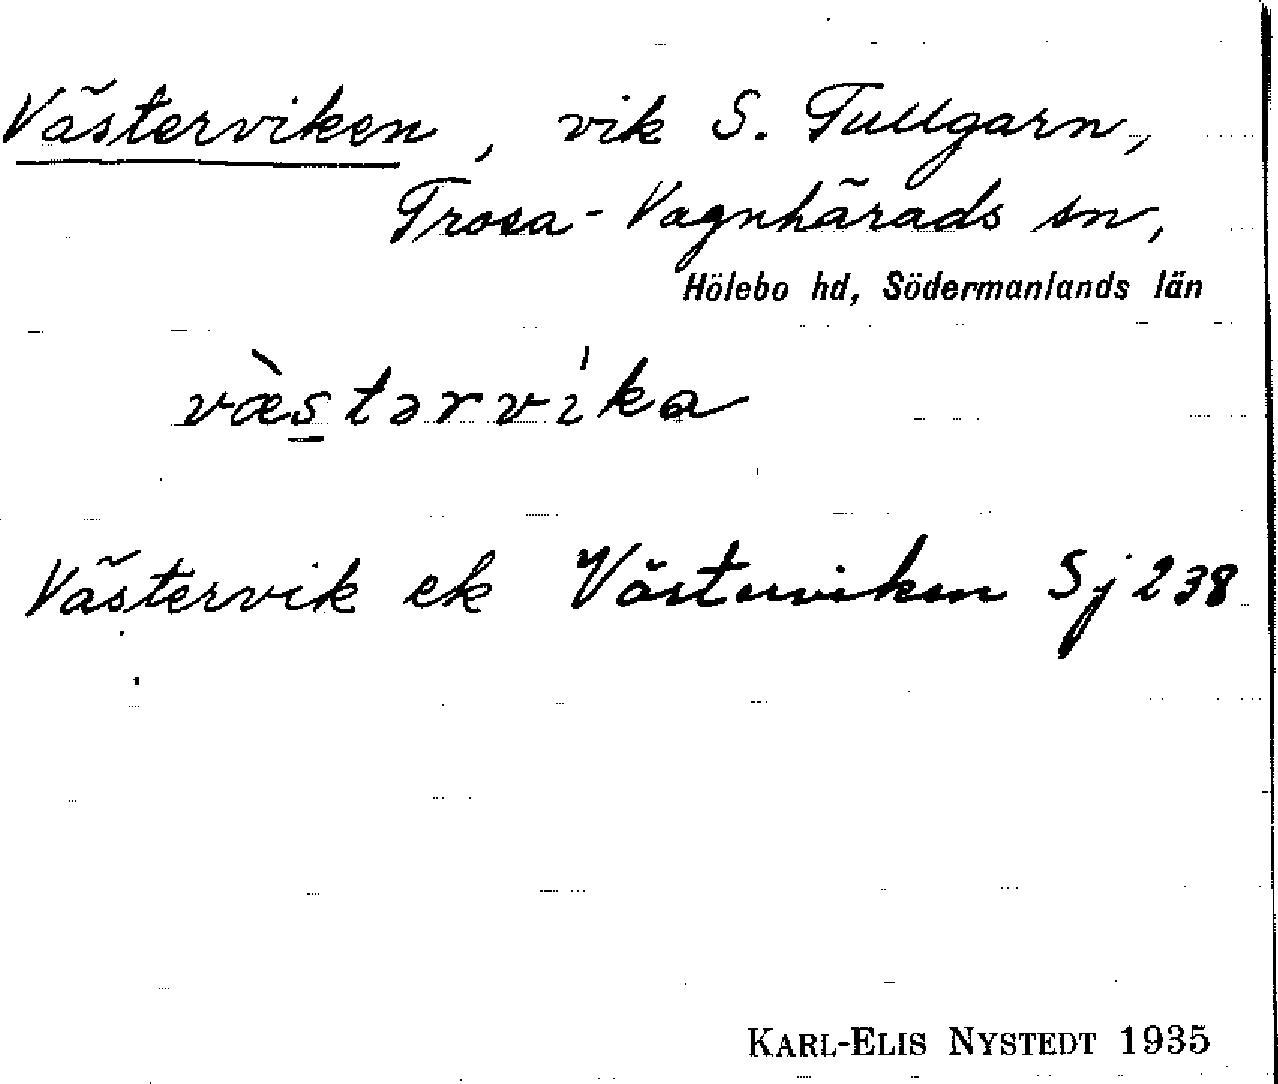 Västerviken, vik S. Tullgarn,
Trosa-Vagnhärads sn,
Hölebo hd, Södermanlands län
væ̀stərvi'ka
Västervik ek Västerviken Sj 238
KARL-ELIS NYSTEDT 1935